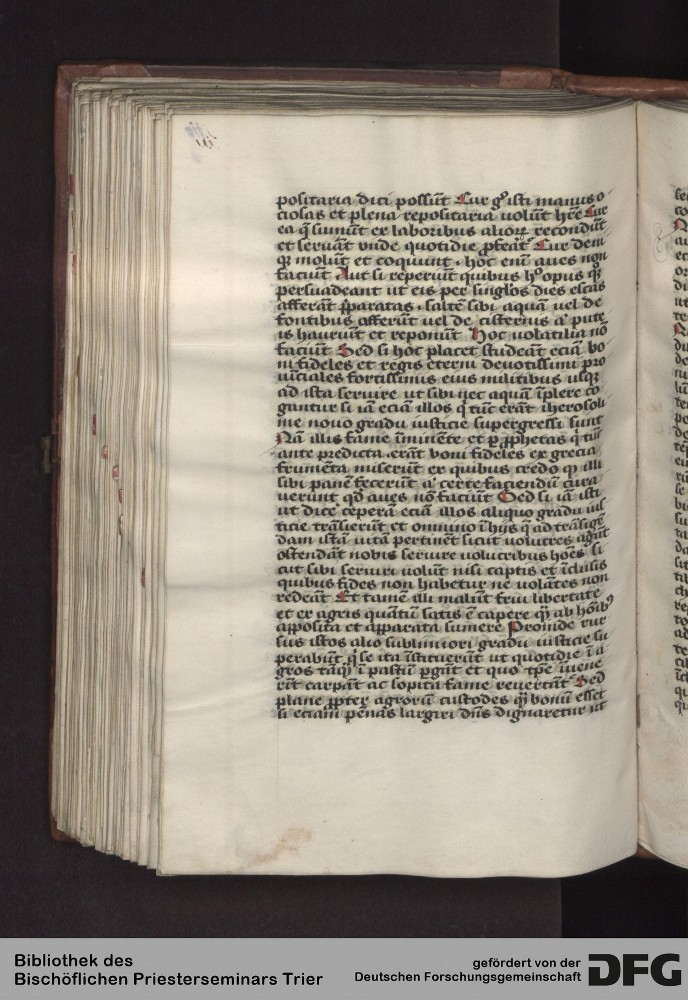 positaria dici possūt Cur gͦ isti manus o
ciosas et plena repositaria uolūt hēe Cur
ea q̄ sumūt ex laboribus alioꝝ recondūt
et seruāt vnde quotidie ꝓferāt Cur deni
qꝫ molūt et coquunt · hoc enī aues non
faciūt Aut si reperiūt quibus hͦ opus qꝫ
persuadeant ut eis per singlos dies escas
afferāt p̄paratas · saltē sibi aquā uel de
fontibus afferūt uel de cisternis a͛ pute
is hauriūt et reponūt Hoc volatilia nō
faciūt Sed si hoc placet studeāt eciā bo
ni fideles et regis eterni deuotissimi pro
uīciales fortissimis eius militibus usqꝫ
ad ista seruire ut sibi nec aquā īplere co
gantur si iā eciā illos q̄ tūc erāt iherosoli
me nouo gradu iusticie supergressi sunt
Nā illis fame īminēte et ꝑ ꝓphetas q̄ tūc
ante predicta · erāt boni fideles ex grecia
frumēta miserūt ex quibus credo qꝫ illi
sibi panē fecerūt a͛ certe faciendū cura
uerūt qd̄ aues nō faciūt Sed si iā isti
ut dice͛ ceperā eciā illos aliquo gradu ius
ticie trāsierūt et omnino ī hijs q̄ ad trāsigē
dam istā uitā pertinēt sicut volucres agūt
ostendāt nobis seruire uolucribus hoēs si
cut sibi seruiri volūt nisi captis et īclusis
quibus fides non habetur ne volātes non
redeāt Et tamē illi malūt frui libertate
et ex agris quātū satis ē capere qꝫ ab hoībꝰ
apposita et apparata sumere Proinde rur
sus istos alio sublimiori gradu iusticie su
perabūt q̄ se ita īstituerūt ut quotidie ī a
gros tāqꝫ ī pastū ꝑgāt et quo tꝑe īuene
rīt carpāt ac sopita fame reuertāt͛ Sed
plane ꝓpter agrorū custodes qꝫ bonū esset
si eciam pēnas largiri dn̄s dignaretur ut
Bibliothek des
Bischöflichen Priesterseminars Trier
gefördert von der
Deutschen Forschungsgemeinschaft
DFG